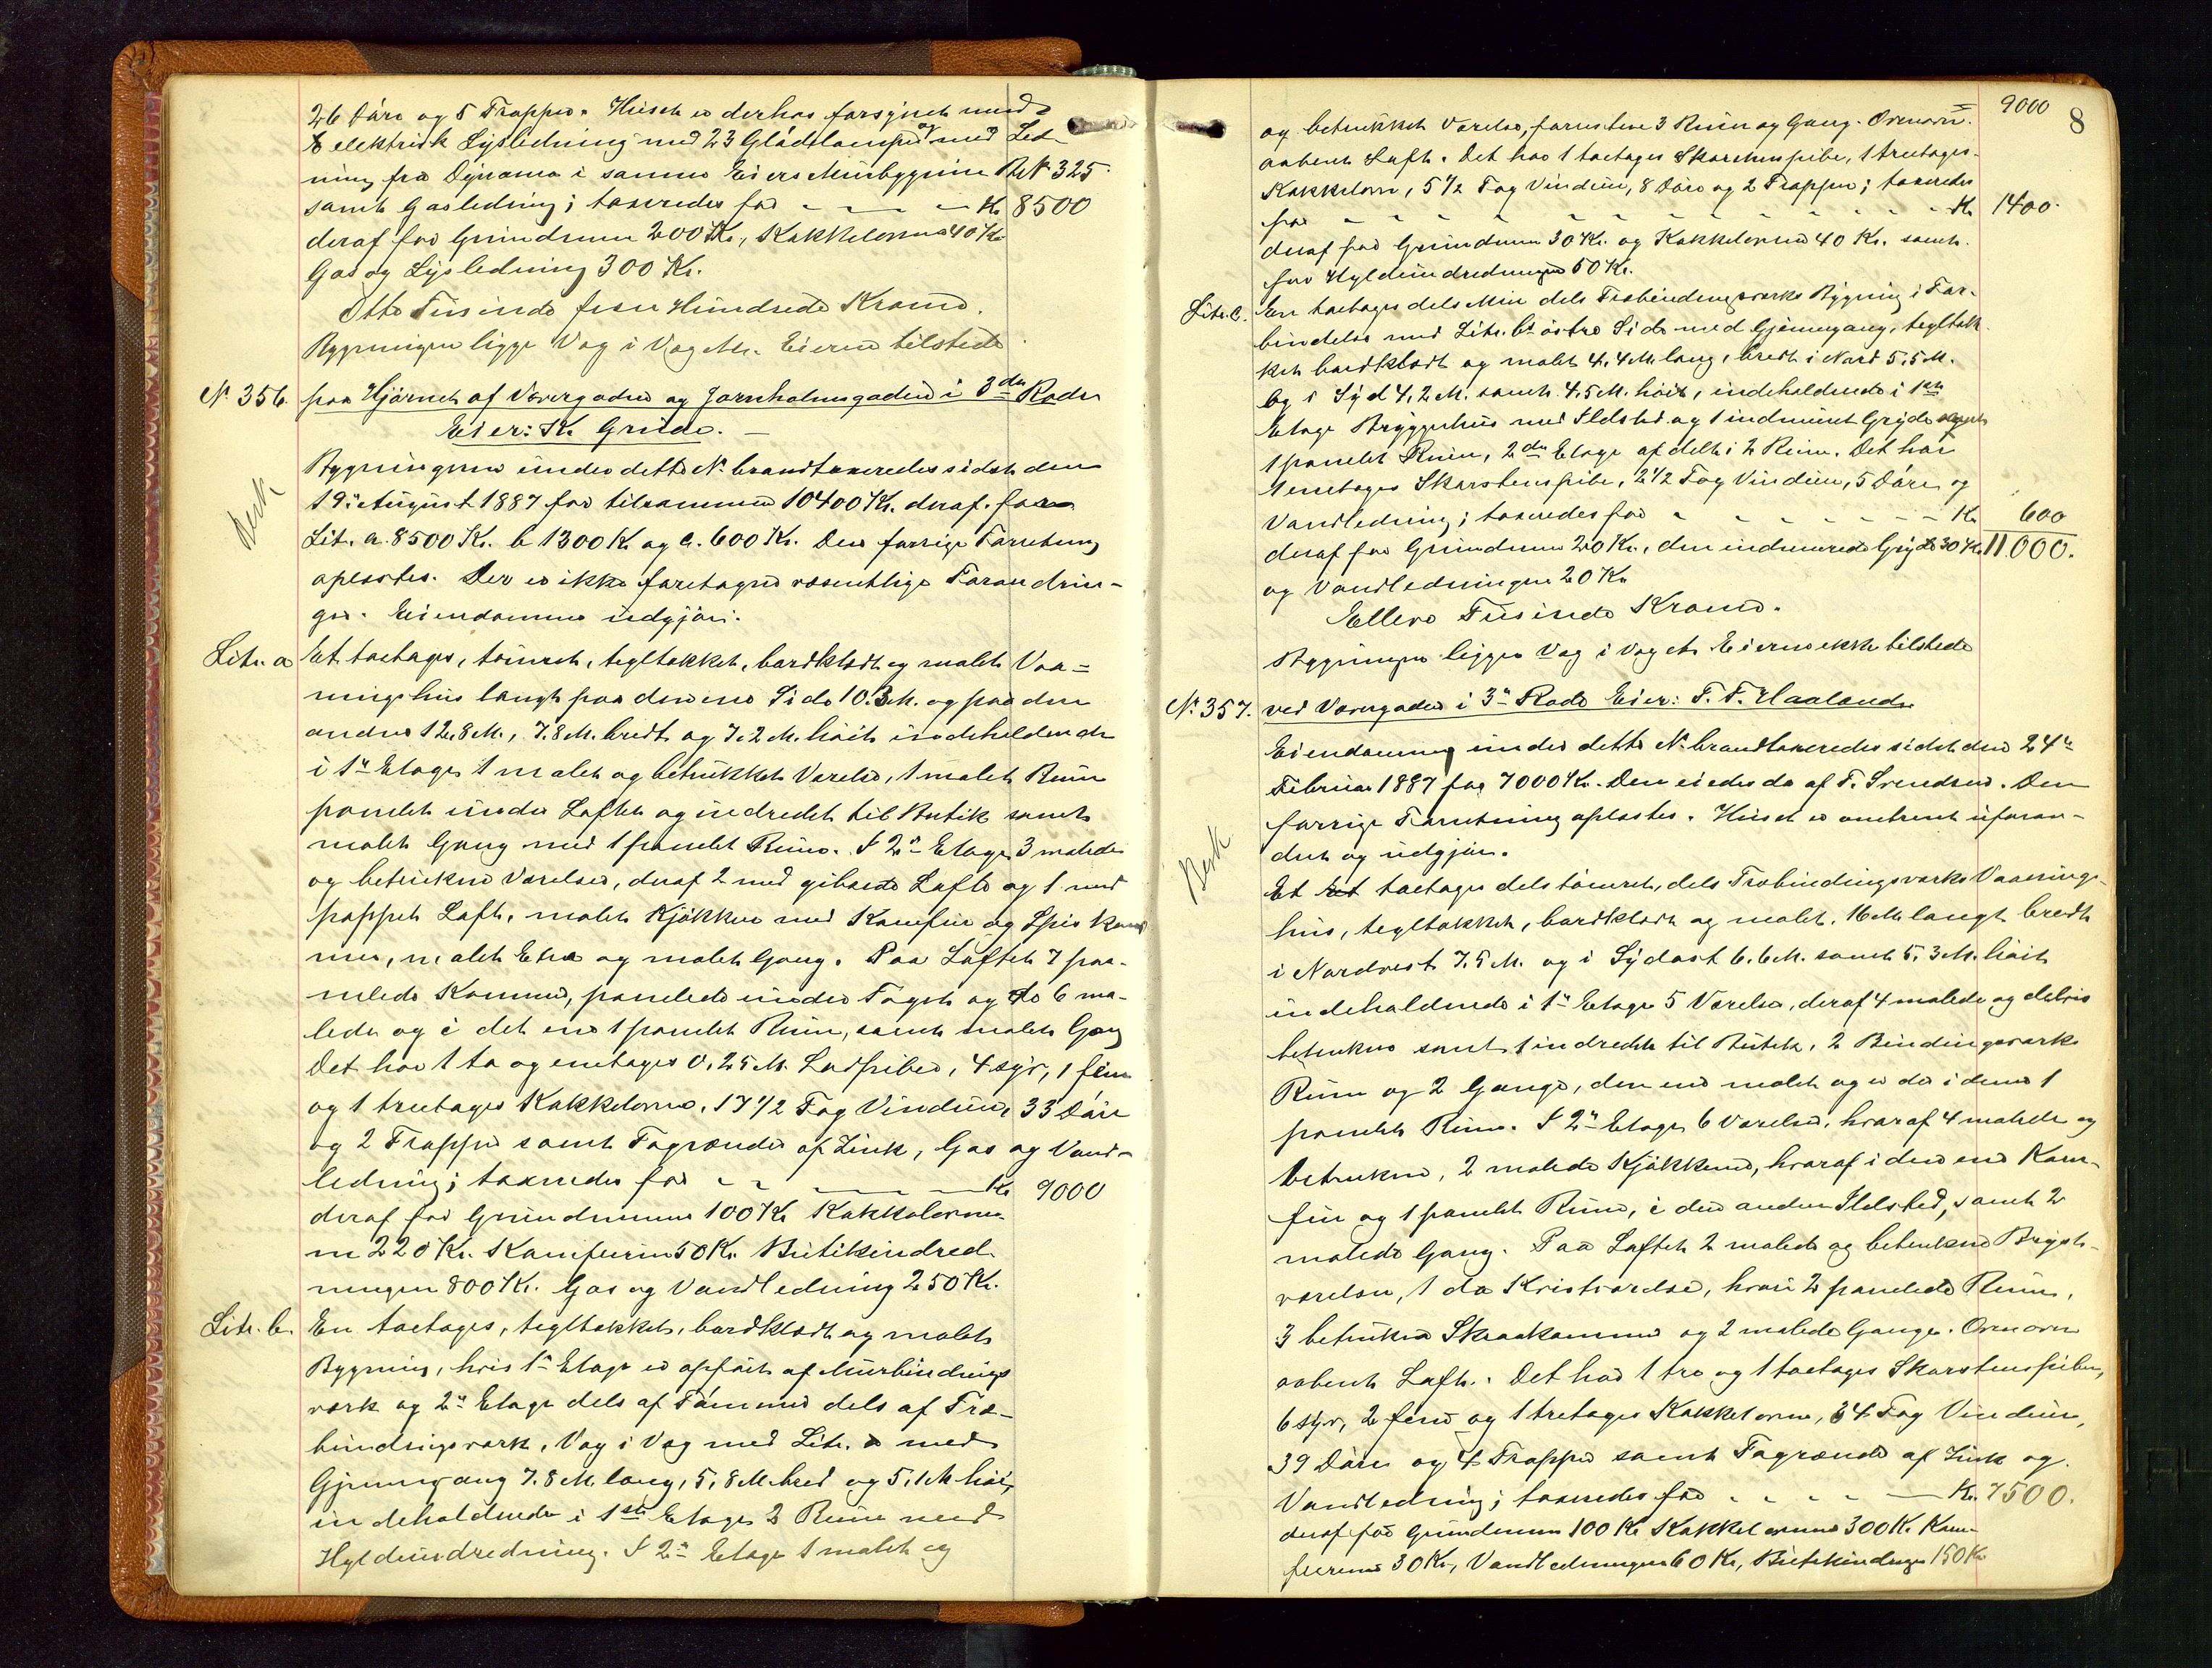 26 Döre og 5 Trapper. Huset er derhos forsynet med
elektrisk Lysledning med 23 Glødelamper og med Led-
ning fra Dynamo i samme Eiers Murbygning BN 325
samt Gasledning; taxeredes for - - - Kr 8500
deraf for Grundmur 200 Kr., Kakkelovne 40 Kr
Gas og Lysledning 300 Kr.
Otte Tusinde fem Hundrede Kroner.
Bygningen ligger Væg i Væg m. Eieren tilstede
N. 356. paa Hjörnet af Vævergaden og Jorenholmsgaden i 3die Rode
Eier: K. Grude.
Bygningerne under dette No brandtaxeredes sidst den
Besk
19. August 1887 for tilsammen 10400 Kr. deraf for
Lit. a. 8500 Kr. b 1300 Kr og c. 600 Kr. Den forrige Forretning
oplæstes. Der er ikke foretagne væsentlige Forandrin-
ger. Eiendommen udgjör:
Litr. a Et toetages, tömret, tegltækket, bordklædt og malet Vaa-
ningshus langt paa den ene Side 10.3 M. og paa den
anden 12,8 M., 7.8 M. bredt og 7,2 M. höit indeholdende
i 1ste Etage 1 malet og betrukket Værelse, 1 malet Rum
panelet under Loftet og indredet til Butik samt
malet Gang med 1 panelet Rum. I 2den Etage 3 malede
og betrukne Værelser, deraf 2 med gibsede Lofte og 1 med
pappet Loft, malet Kjökken med Komfur og Spiskam
mer, malet Etra og malet Gang. Paa Loftet 7 pa-
nelede Kammer, panelede under Taget og de 6 ma-
lede og i det ene 1 panelet Rum, samt malet Gang
Det har 1 to og enetages 0,25 M. Ladpiber, 4 syv, 1 fem
og 1 treetages Kakkelovne, 17 1/2 Fag Vinduer, 33 Döre
og 2 Trapper samt Tagrender af Zink, Gas og Vand-
ledning; taxeredes for - - - - Kr 9000
deraf for Grundmuren 100 Kr Kakkelovne-
ne 220 Kr. Komfuren 50 Kr. Butikindred-
ningen 800 Kr. Gas og Vandledning 250 Kr.
Litr. b. En toetages, tegltækket, bordklædt og malet
Bygning, hvis 1ste Etage er opfört af Murbindings
værk og 2den Etage dels af Tömmer dels af Træ-
bindingsværk, Væg i Væg med Litr. a med
Gjennemgang 7.8 M. lang, 5,8 M. bred og 5,1 M höi,
indeholdende i 1ste Etage 2 Rum med
Hyldeindredning. I 2den Etage 1 malet og
9000
8
og betrukket Værelse, forresten 3 Rum og Gang. Ovenover
aabent Loft. Det har 1 toetages Skorstenspibe, 1 treetages
Kakkelovn, 5 1/2 Fag Vinduer, 8 Döre og 2 Trapper; taxeredes
for - - - - - - - - - - Kr 1400.
deraf for Grundmur 30 Kr. og Kakkelovne 40 Kr. samt.
for Hyldeindredningen 50 Kr.
Litr. c. En toetages dels Mur dels Træbindingsværks Bygning i For-
bindelse med Litr. b's östre Side med Gjennemgang, tegltæk-
ket bordklædt og malet 4,4 M. lang, bredt i Nord 5,5 M.
og i Syd 4,2 M. samt 4,5 M. höit, indeholdende i 1ste
Etage Bryggerhus med Ildsted og 1 indmuret Gryde samt
1 panelet Rum, 2den Etage afdelt i 2 Rum. Det har
1 enetages Skorstenspibe, 2 1/2 Fag Vinduer, 5 Döre og
Vandledning; taxeredes for - - - - - - Kr 600
deraf for Grundmur 20 Kr., den indmurede Gryde 30 Kr 11.000.
og Vandledningen 20 Kr
Elleve Tusinde Kroner.
Bygningen ligger Væg i Væg etc Eieren ikke tilstede
N. 357. ved Vævergaden i 3die Rode Eier: T. T. Haaland.
Eiendommen under dette No brandtaxeredes sidst den 24de
Februar 1887 for 7000 Kr. Den eiedes da af T. Svendsen. Den
forrige Forretning oplæstes. Huset er omtrent uforan-
dret og udgjör.
Besk
Et toetages dels tömret, dels Træbindingsværks Vaanings-
hus, tegltækket, bordklædt og malet. 16 M langt bredt
i Nordvest 7,5 M. og i Sydost 6.6 M. samt 5,3 M. höit
indeholdende i 1ste Etage 5 Værelser, deraf 4 malede og delvis
betrukne samt 1 indredet til Butik, 2 Bindingsværks
Rum og 2 Gange, den ene malet og er der i denne 1
panelet Rum. I 2den Etage 6 Værelser, hvoraf 4 malede og
betrukne, 2 malede Kjökkener, hvoraf i den ene Kom-
fur og 1 panelet Rum, i den anden Ildsted, samt 2
malede Gang. Paa Loftet 2 malede og betrukne Bryst-
værelser, 1 do Kvistværelse, hvori 2 panelede Rum,
3 betrukne Skraakammer og 2 malede Gange. Ovenover
aabent Loft. Det har 1 tre og 1 toetages Skorstenspiber,
6 syv, 2 fem og 1 tretages Kakkelovne, 34 Fag Vinduer,
39 Döre og 4 Trapper samt Tagrender af Zink og
Vandledning; taxeredes for - - - - Kr. 7500.
deraf for Grundmuren 100 Kr Kakkelovnene 300 Kr. Kom-
furene 30 Kr, Vandledningen 60 Kr, Butikindredn 150 Kr